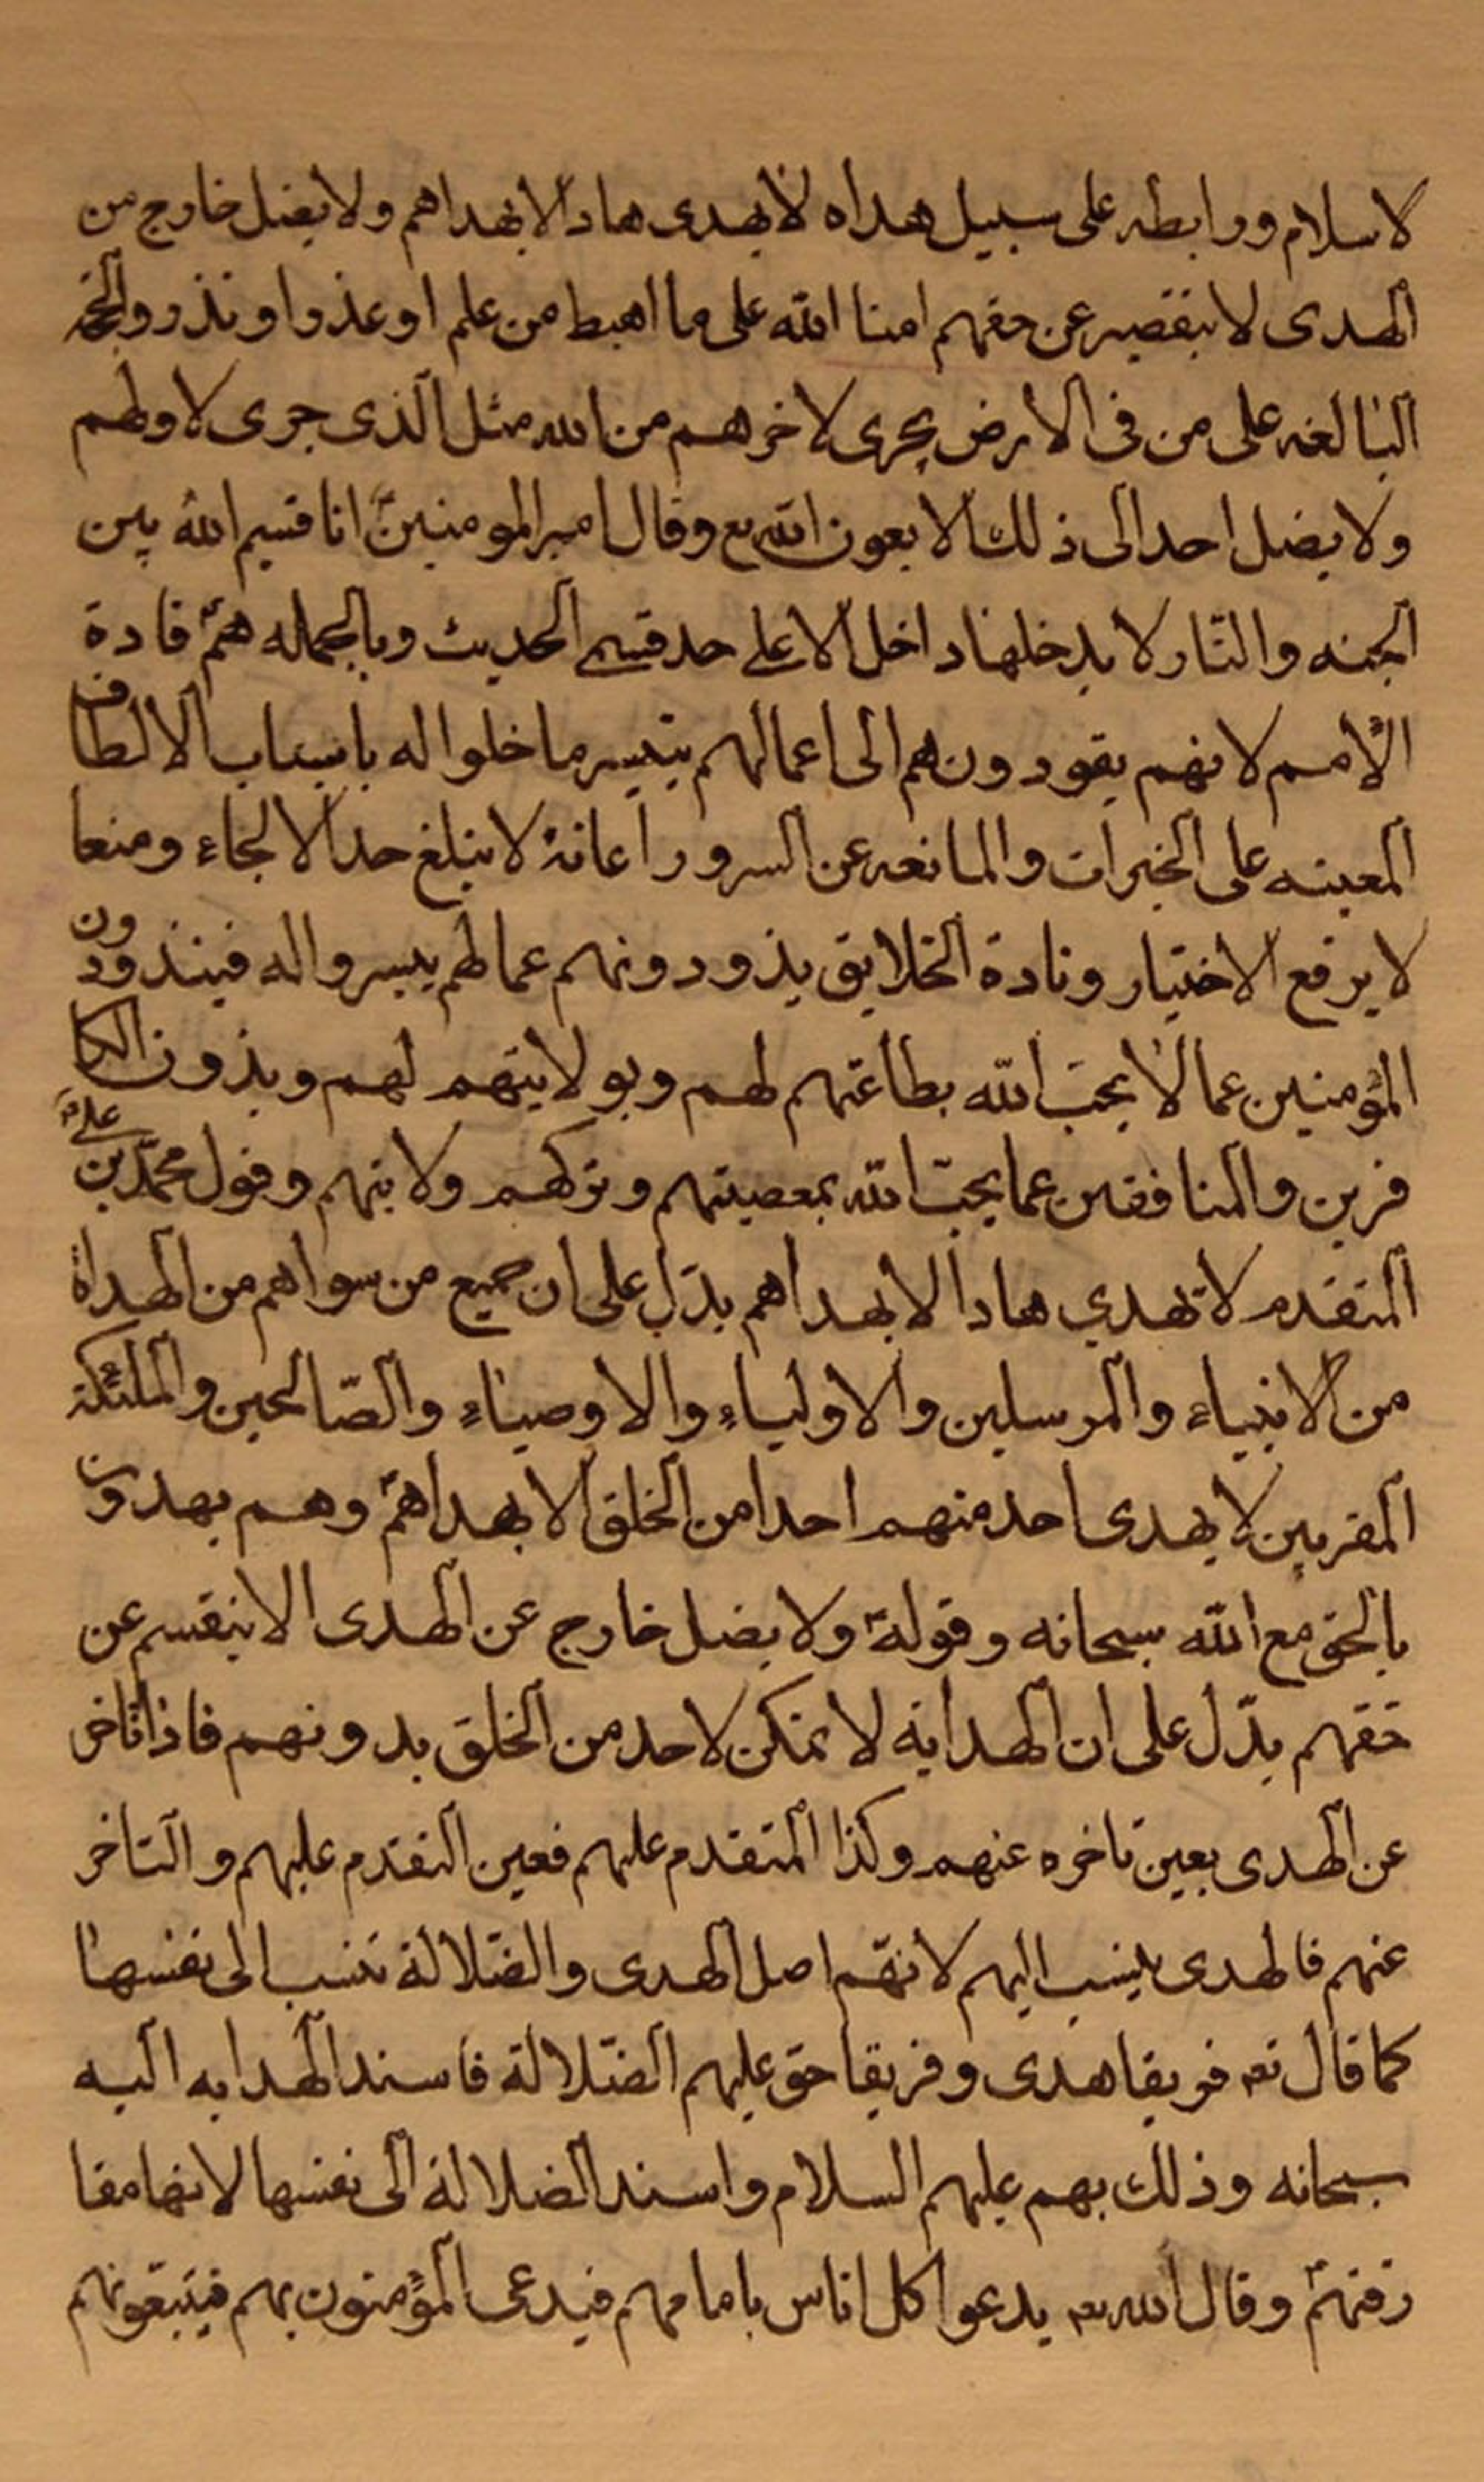 لاسلام ورابطه على سبيل هداه لا يهدى هاد الا بهداهم ولا يضل خارج من
الهدى الا بتقصير عن حقهم امنا الله على ما اهبط من علم او عذر او نذر والحجة
البالغه على من فى الارض يجرى لاخرهم من الله مثل الذى جرى لاولهم
ولا يصل احد الى ذلك الا بعون الله تع وقال امير المومنينؑ انا قسيم الله بين
الجنه والنار لا يدخلها داخل الا على حد قسمى الحديث وبالجمله همؑ قادة
الامم لانهم يقودونهم الى اعمالهم بتيسير ما خلوا له باسباب الالطاف
المعينه على الخيرات والمانعه عن السرور اعانة لا تبلغ حد الالجاء ومنعا
لا يرفع الاختيار وذادة الخلايق يذودونهم عما لم ييسروا له فيذودون
المؤمنين عما لا يحب الله بطاعتهم لهم وبولايتهم لهم ويذون الكا
فرين والمنافقين عما يحب الله بمعصيتهم وتركهم ولايتهم وقول محمد بن علىؑ
المتقدم لا تهدي هاد الا بهداهم يدل على ان جميع من سواهم من الهداة
من الانبياء والمرسلين والاولياء والاوصياء والصالحين والملئكة
المقربين لا يهدى احد منهم احدا من الخلق الا بهداهمؑ وهم يهدون
بالحق مع الله سبحانه وقولهؑ ولا يضل خارج عن الهدى الا بتقسم عن
حقهم يدل على ان الهداية لا تمكن لاحد من الخلق بدونهم فاذا تاخر
عن الهدى بعين تاخره عنهم وكذا المتقدم عليهم فعين التقدم عليهم والتاخر
عنهم فالهدى ينسب اليهم لانهم اصل الهدى والضلالة تنسب الى نفسها
كما قال تع فريقا هدى وفريقا حق عليهم الضلالة فاسند الهدايه اليه
سبحانه وذلك بهم عليهم السلام واسند الضلالة الى نفسها لانها مفا
رقتهمؑ وقال الله تع يدعوا كل اناس بامامهم فيدعى المؤمنون بهم فيتبعونهم